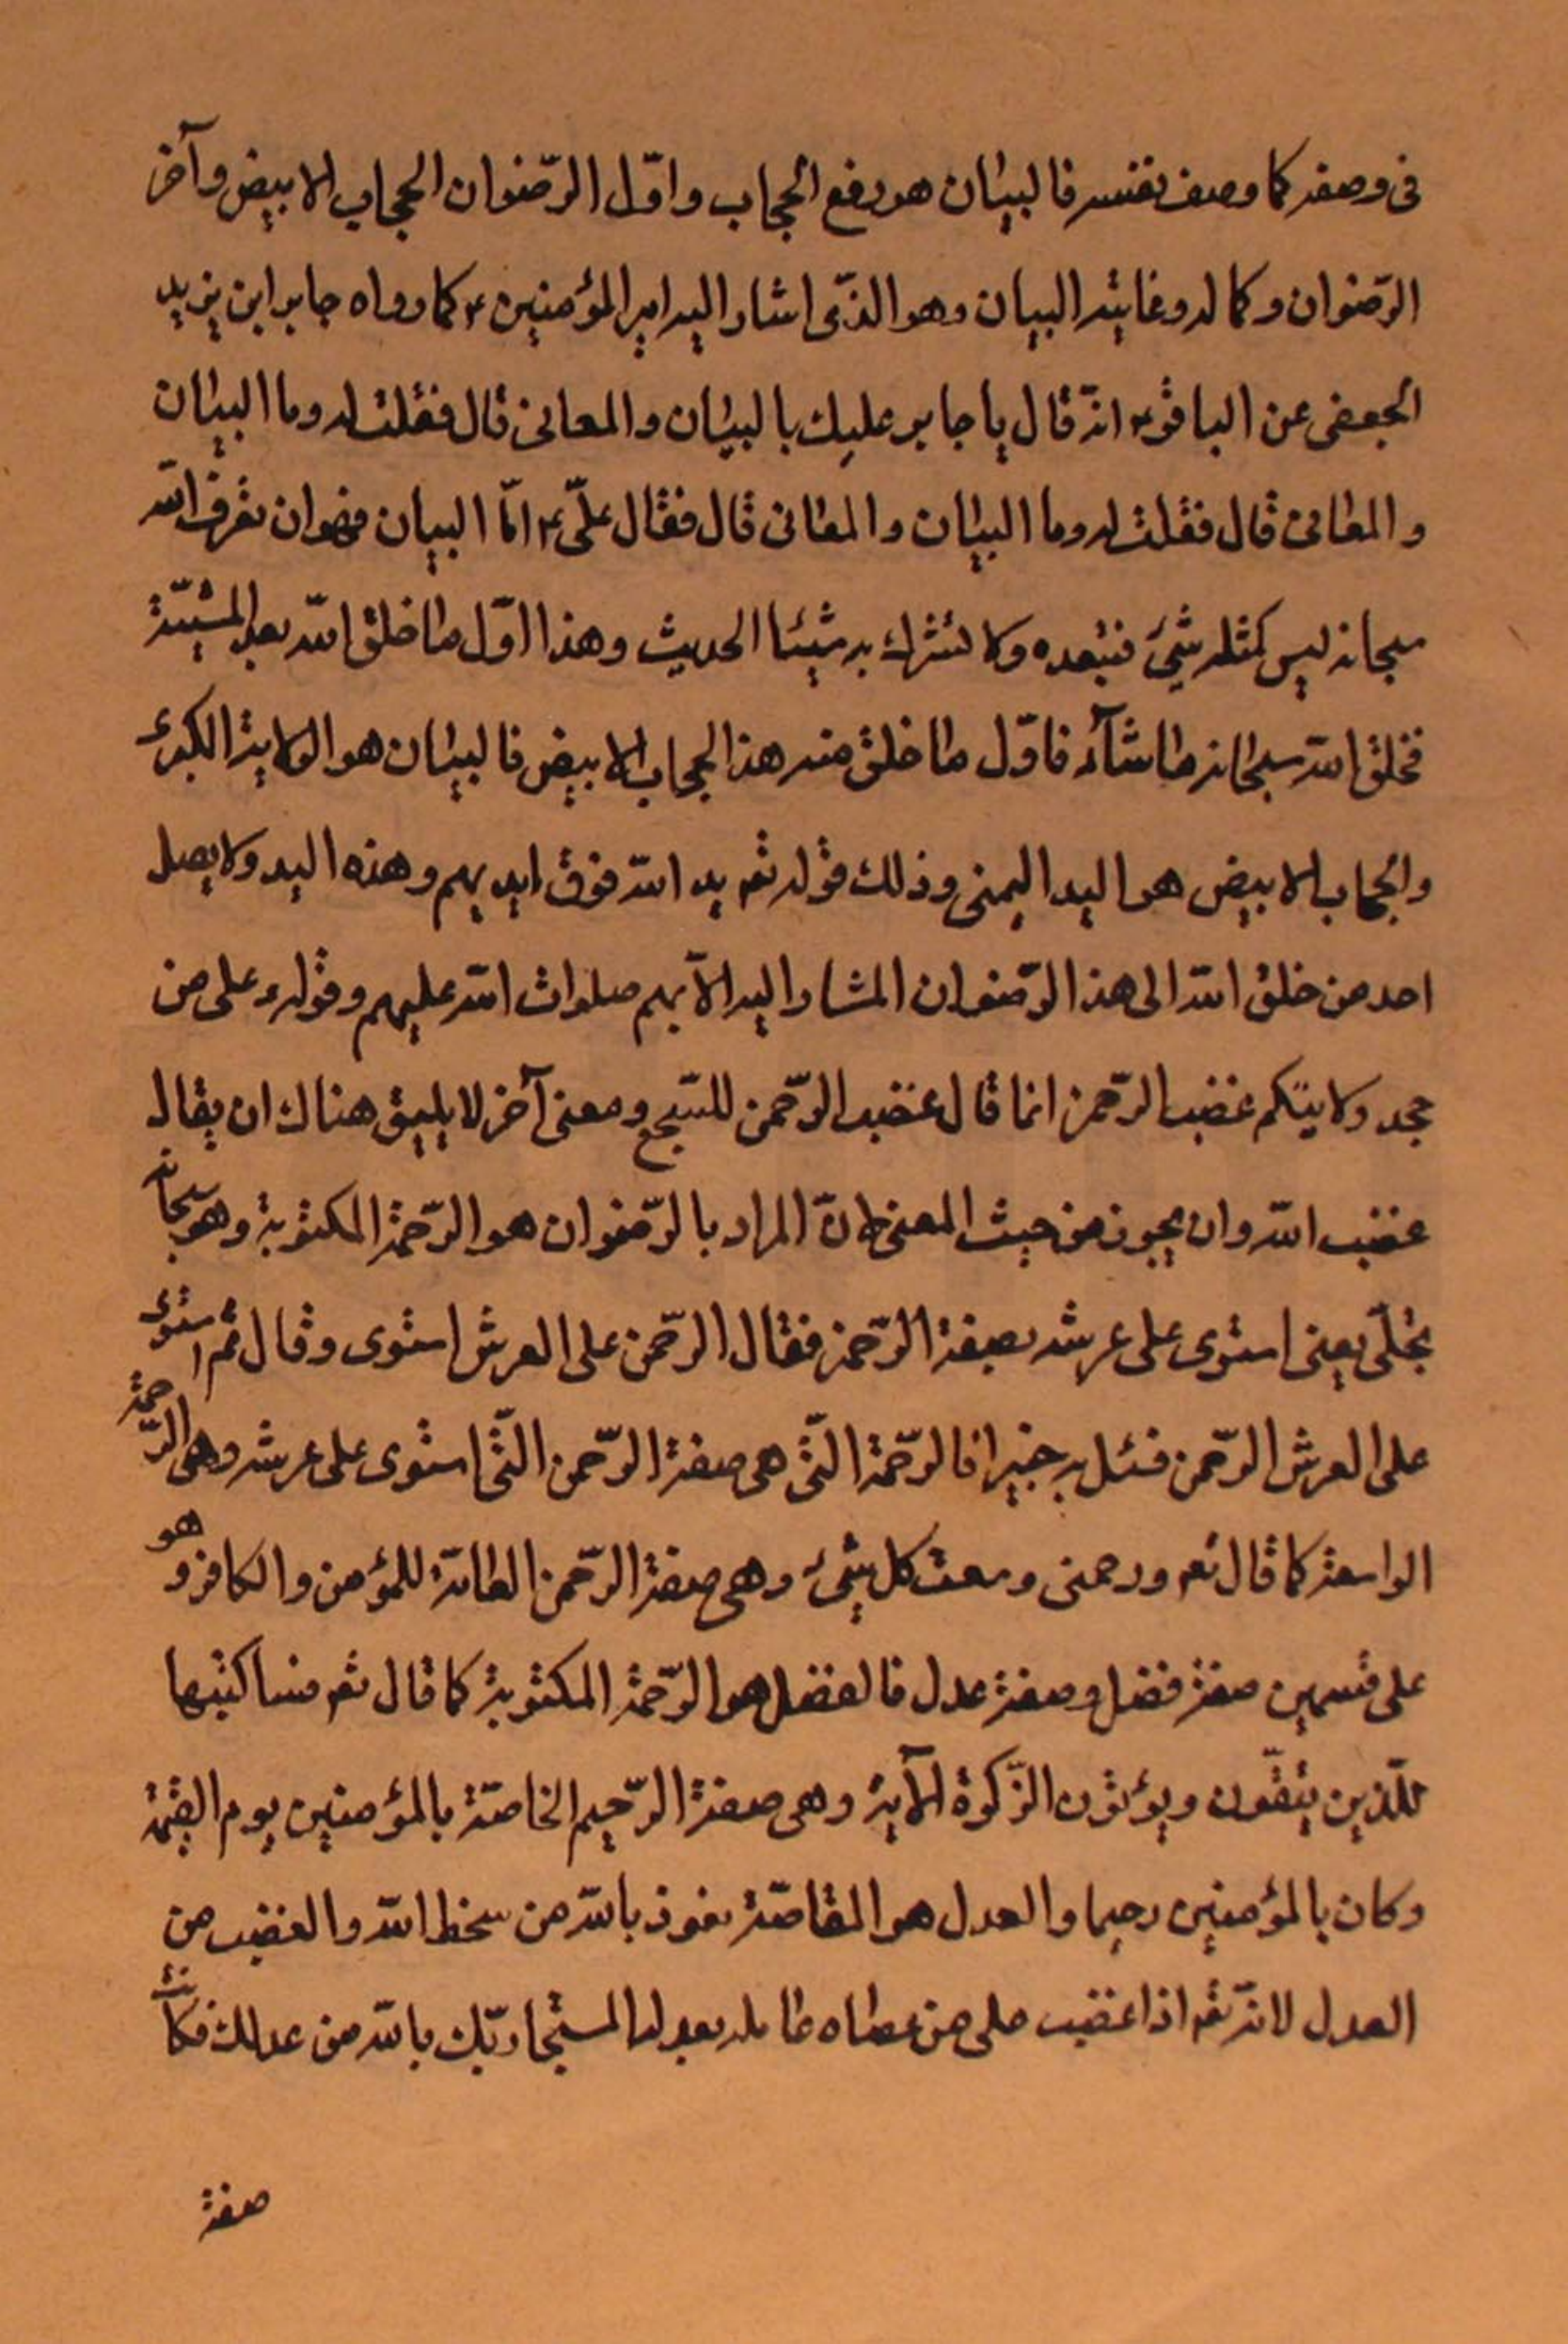 فى وصفه كما وصف نفسه فالبيان هو رفع الحجاب واوّل الرّضوان الحجاب الابيض وآخر
الرّضوان وكماله وغايته البيان وهو الذّى اشار اليه امير المؤمنين ع كما رواه جابر ابن يزيد
الجعفى عن الباقر ع انّه قال يا جابر عليك بالبيان والمعانى قال فقلت له وما البيان
والمعانى قال فقلت له وما البيان والمعانى قال فقال علىّ ع امّا البيان فهو ان تعرف الله
سبحانه ليس كمثله شئ فتعبده ولا تشرك به شيئا الحديث وهذا اوّل ما خلق الله بعد المشيّة
فخلق الله سبحانه ما شآء فاوّل ما خلق منه هذا الحجاب الابيض فالبيان هو الولاية الكبرى
والحجاب الابيض هو اليد اليمنى وذلك قوله تع يد الله فوق ايديهم وهذه اليد ولا يصل
احد من خلق الله الى هذا الرّضوان المشار اليه الّا بهم صلوات الله عليهم وقوله ع على من
جحد ولايتكم غضب الرّحمن انما قال غضب الرّحمن للسّجع ومعنى آخر لا يليق هناك ان يقال
غضب الله وان يجوز من حيث المعنى لانّ المراد بالرّضوان هو الرّحمة المكتوبة وهو سبحانه
تجلّى يعنى استوى على عرشه بصفة الرّحمن فقال الرّحمن على العرش استوى وقال ثم استوى
على العرش الرّحمن فسئل به خبيرا فالرّحمة الّتى هى صفة الرّحمن الّتى استوى على عرشه وهى الرّحمة
الواسعة كما قال تع ورحمتى وسعت كل شئ وهى صفة الرّحمن العامّة للمؤمن والكافر وهو
على قسمين صفة فضل وصفة عدل فالفضل هو الرّحمة المكتوبة كما قال تع فساكتبها
للّذين يتّقون ويؤتون الزّكوة الآية وهى صفة الرّحيم الخاصّة بالمؤمنين يوم القيمة
وكان بالمؤمنين رحيما والعدل هو المقاصّة نعوذ بالله من سخط الله والغضب من
العدل لانّه تع اذا غضب على من عصاه عامله بعدله المستجار بك يا الله من عدلك فكانت
صفة